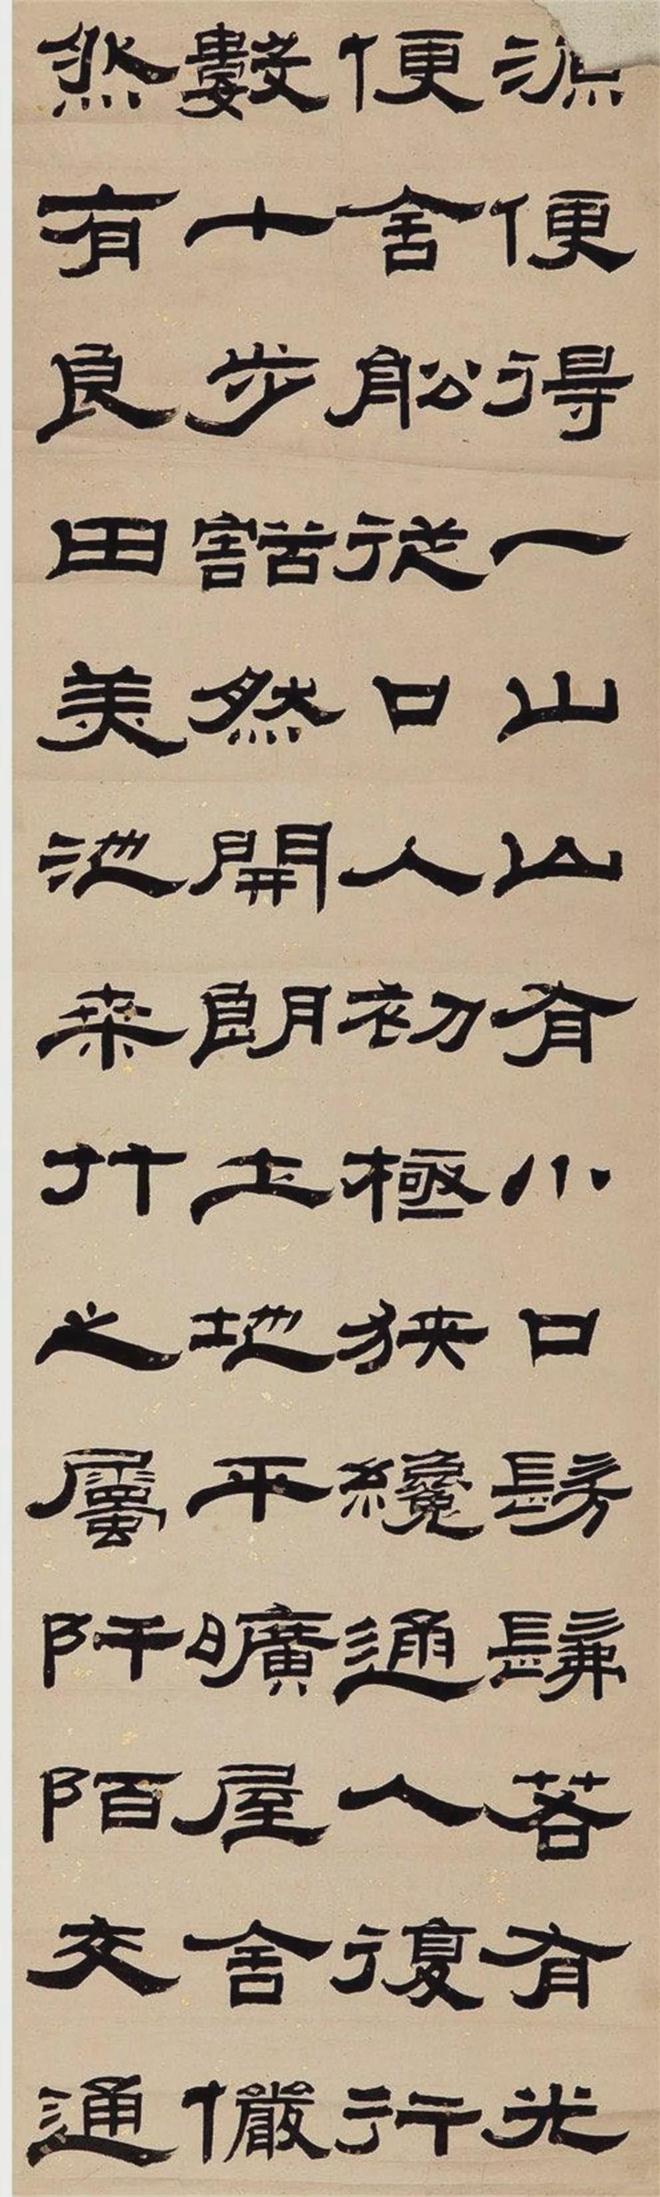 源便得一山山有小口髣髴若有光
便舍舩從口入初極狹纔通人復行
數十步豁然開朗土地平曠屋舍儼
然有良田美池桒竹之屬阡陌交通